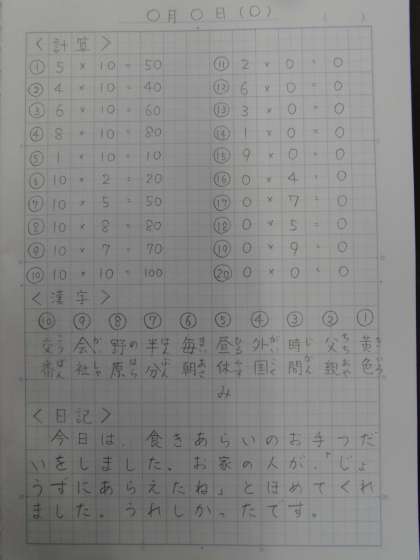 〇月〇日(〇)　(　　)
<計算>
① 5 × 10 = 50
② 4 × 10 = 40
③ 6 × 10 = 60
④ 8 × 10 = 80
⑤ 1 × 10 = 10
⑥ 10 × 2 = 20
⑦ 10 × 5 = 50
⑧ 10 × 8 = 80
⑨ 10 × 7 = 70
⑩ 10 × 10 = 100
⑪ 2 × 0 = 0
⑫ 6 × 0 = 0
⑬ 3 × 0 = 0
⑭ 1 × 0 = 0
⑮ 9 × 0 = 0
⑯ 0 × 4 = 0
⑰ 0 × 7 = 0
⑱ 0 × 5 = 0
⑲ 0 × 9 = 0
⑳ 0 × 0 = 0
<漢字>
① 黄色 きいろ
② 父親 ちちおや
③ 時間 じかん
④ 外国 がいこく
⑤ 昼休み ひるやす
⑥ 毎朝 まいあさ
⑦ 半分 はんぶん
⑧ 野原 のはら
⑨ 会社 かいしゃ
⑩ 交番 こうばん
<日記>
今日は、食きあらいのお手つだ
いをしました。お家の人が、「じょ
うずにあらえたね」とほめてくれ
ました。うれしかったです。